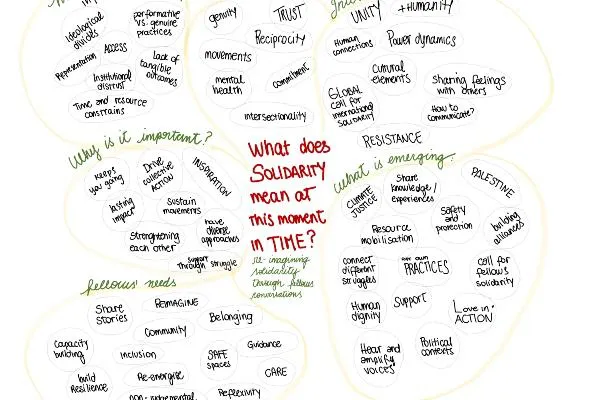 Ideological
divides
performative
vs. genuine
practices
Access
Representation
Institutional
distrust
lack of
tangible
outcomes
Time and resource
constrains
genuity
TRUST
Reciprocity
movements
mental
health
commitment
intersectionality
UNITY
+HUMANITY
Human
connections
Power dynamics
Cultural
elements
Sharing feelings
with others
GLOBAL
call for
international
SOLIDARITY
How to
communicate?
RESISTANCE
Why is it important?
keeps
you going
Drive
collective
ACTION
INSPIRATION
lasting
impact
Sustain
movements
Strengthening
each other
have
diverse
approaches
support
through struggle
What does
SOLIDARITY
mean at
this moment
in TIME?
re-imagining
solidarity
through fellows
conversations
What is emerging?
CLIMATE
JUSTICE
Share
knowledge/
experiences
PALESTINE
Resource
mobilisation
Safety
and
protection
building
alliances
connect
different
struggles
our own
PRACTICES
call for
fellows
solidarity
Human
dignity
Support
Love in
ACTION
Hear and
amplify
voices
Political
contexts
fellows' needs
Share
stories
REIMAGINE
Belonging
Community
Capacity
building
inclusion
SAFE
spaces
Guidance
build
Resilience
Re-energise
CARE
non-judgemental
Reflexivity